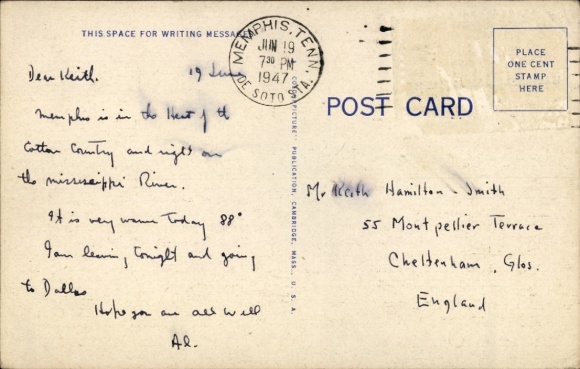 THIS SPACE FOR WRITING MESSAGES
MEMPHIS, TENN.
JUN 19
7 30 PM
1947
DE SOTO STA.
Dear Keith.
19 June
Memphis is in the Heart of the
Cotton Country and right on
the mississippi River.
It is very warm today 88°
I am leaving tonight and going
to Dallas
Hope you are all well
Al.
PUBLICATION, CAMBRIDGE, MASS., U. S. A.
POST CARD
PLACE
ONE CENT
STAMP
HERE
Mr Keith Hamilton-Smith
55 Montpellier Terrace
Cheltenham, Glos.
England